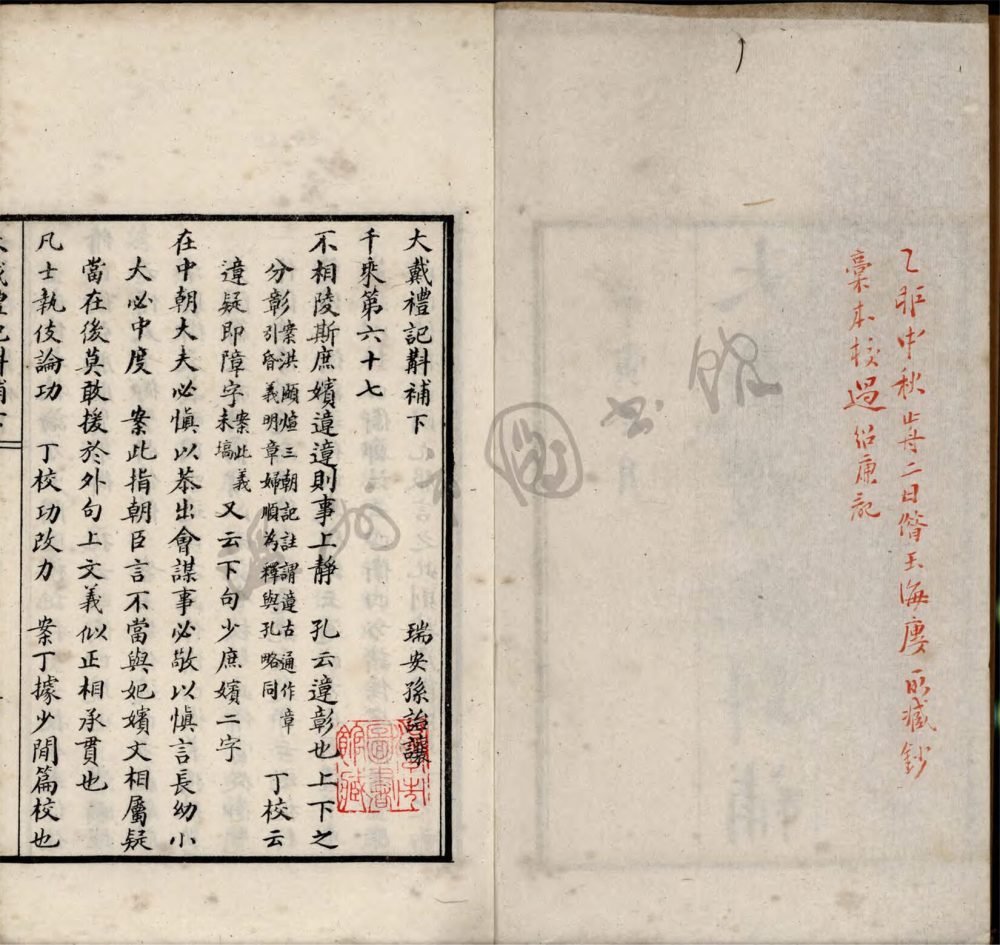 乙酉中秋十二日借玉海廔所藏鈔
稾本校過紹廉記
大戴禮記斠補下
瑞安孫詒讓
千乘第六十七
不相陵斯庶嬪違違則事上靜　孔云違彰也上下之
分彰案洪頤煊三朝記註謂違古通作章引昏義明章婦順為釋與孔略同　丁校云
違疑即障字案此義未塙　又云下句少庶嬪二字
在中朝大夫必慎以恭出會謀事必敬以慎言長幼小
大必中度　案此指朝臣言不當與妃嬪文相屬疑
當在後莫敢援於外句上文義似正相承貫也
凡士執伎論功　丁校功改力　案丁據少閒篇校也
大戴禮記斠補下
圖書館藏